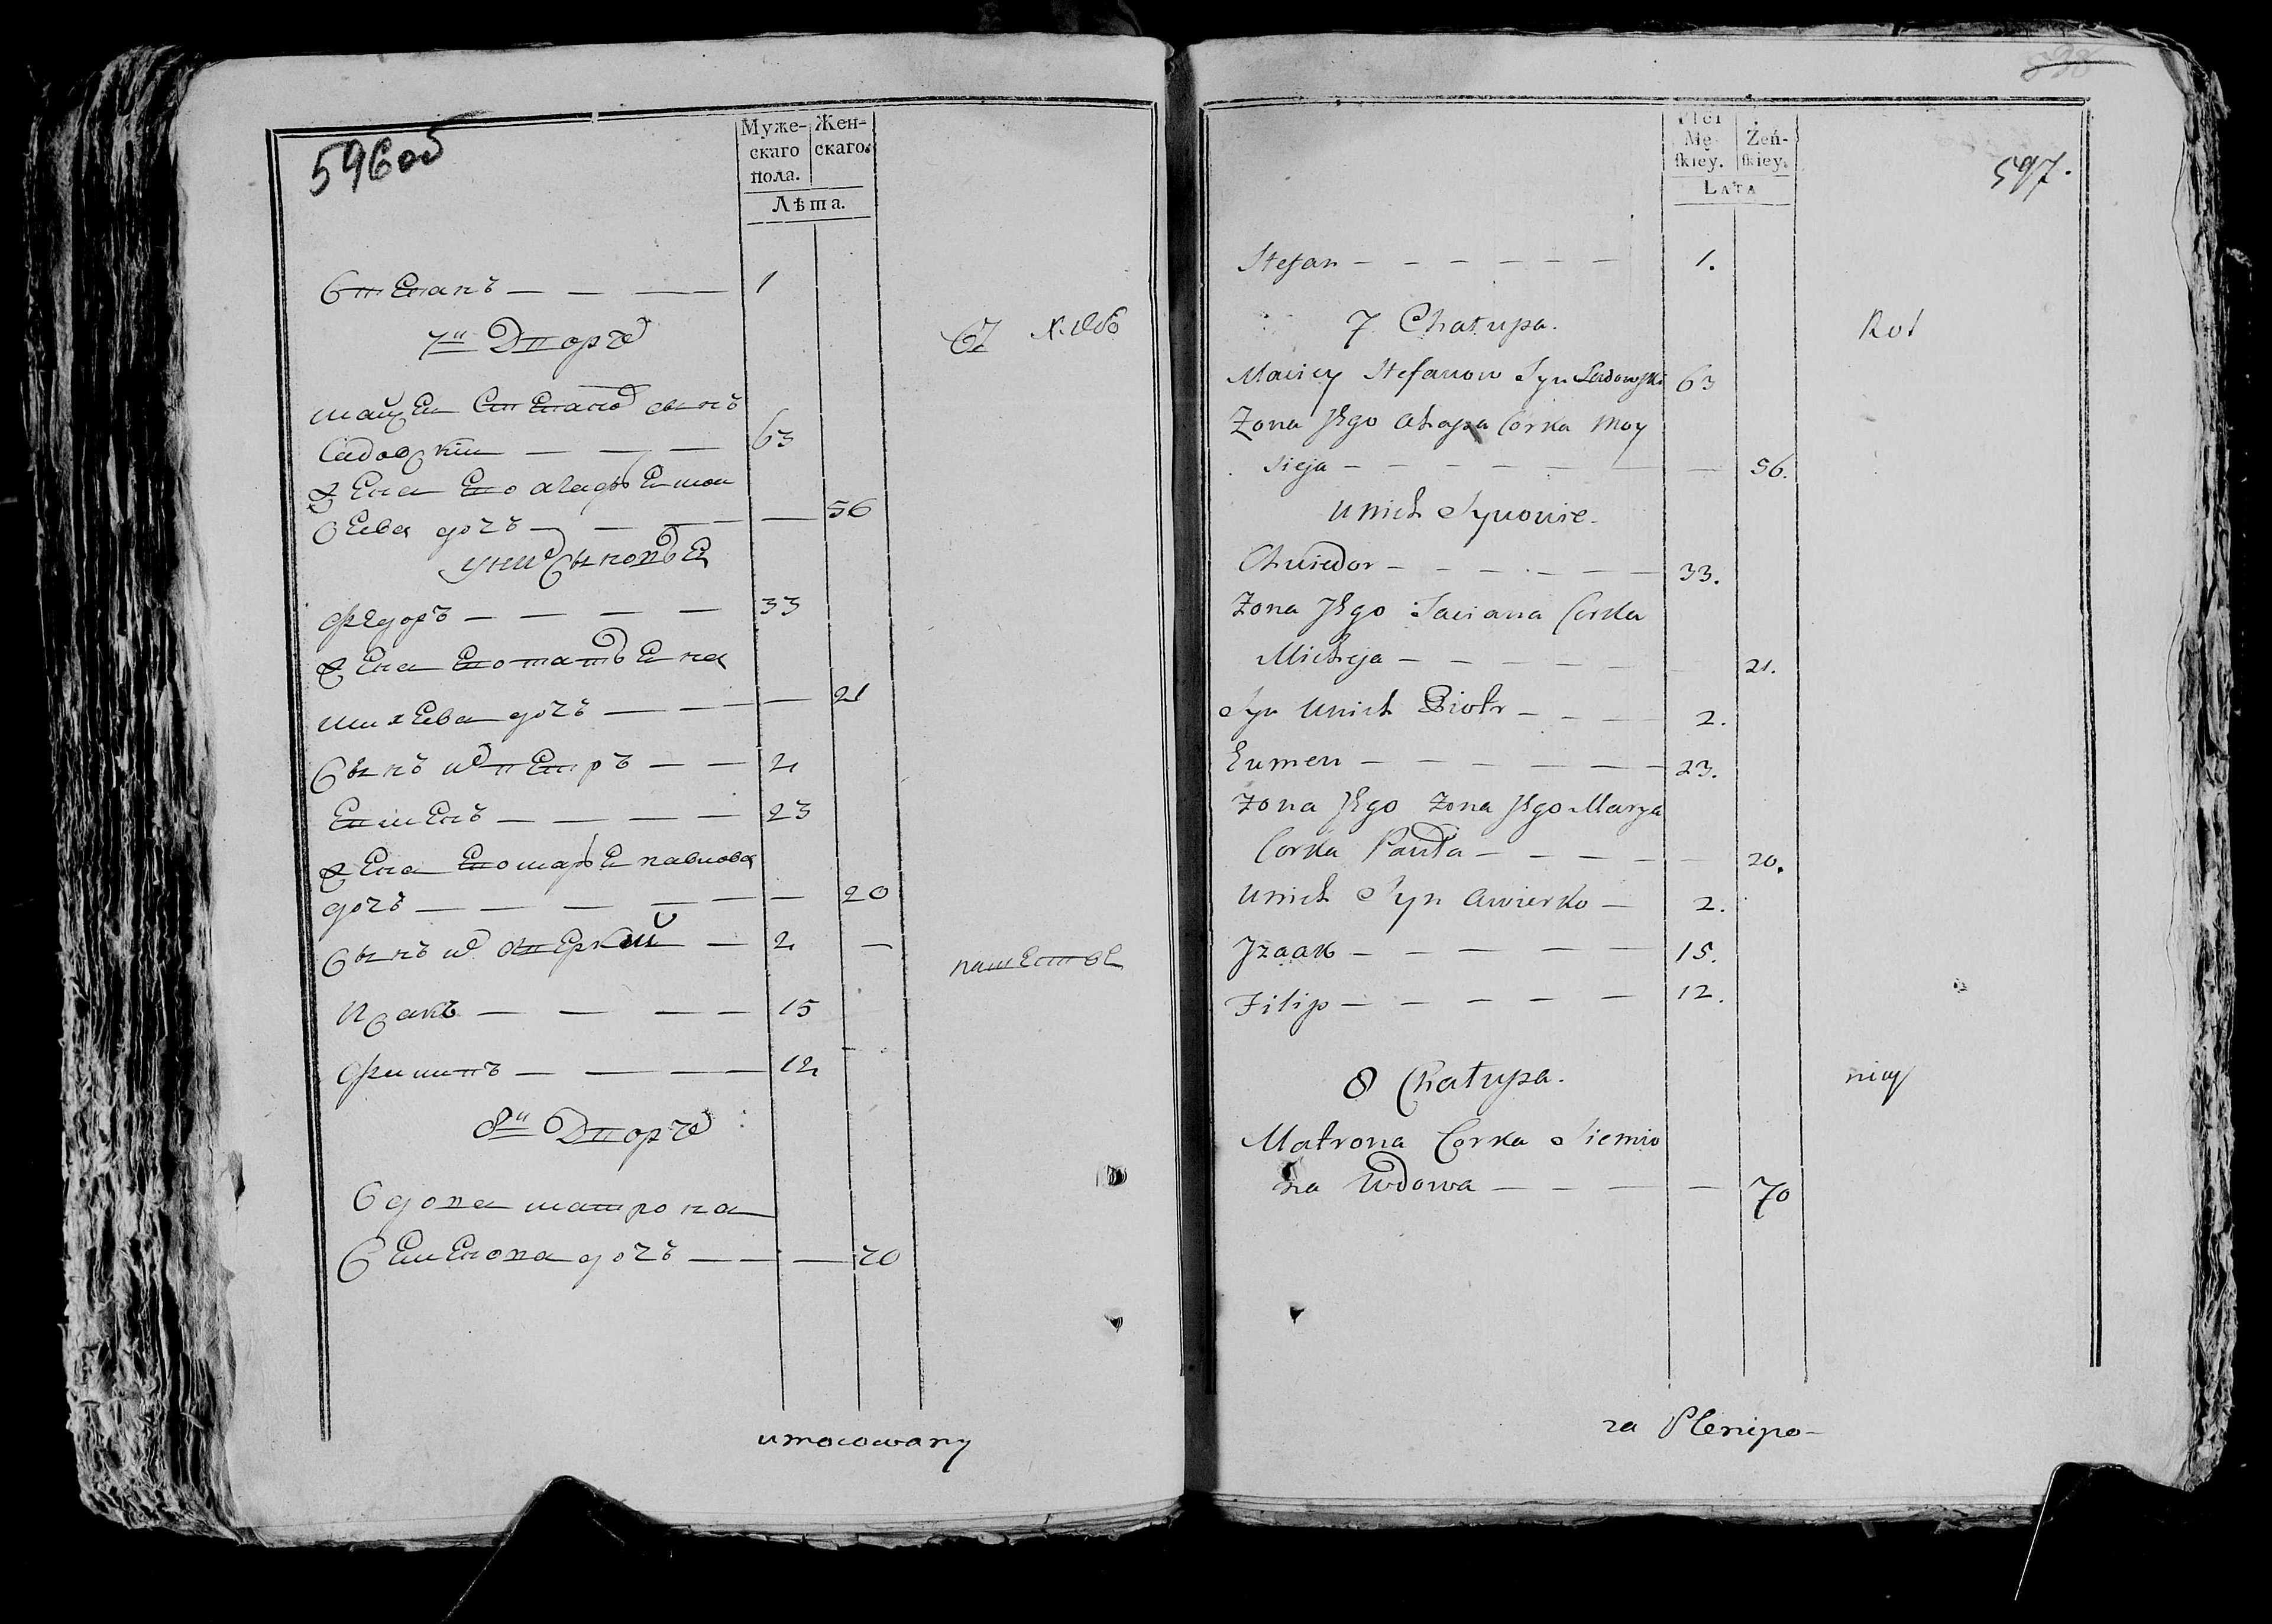 596об
Муже- Жен-
скаго скаго.
пола.
Лѣта.
Степанъ — — — — 1
7й Дворъ
мацей Степановъ сынъ
Садовскій — — — 63
жена его агафья мои
сеева дочь — — — — 56
у них сыновья
федоръ — — — — 33
жена его татьяна
михеева дочь — — — — 21
Сынъ их петръ — — 2
евменъ — — — — 23
жена его марья павлова
дочь — — — — — — 20
Сынъ их аверкий — 2 —
Исакъ — — — — 15
филипъ — — — — 12
8й Дворъ
вдова матрона
Семенова дочь — — — 70
umocowany
597.
Płci
Mę- Żeń-
ſkiey. ſkiey.
LATA
Stefan — — — — — — 1.
7. Chałupa.
Maciey Stefanow Syn Sadowski 63
Zona Jego Ahapa Corka Moy
sieja — — — — — — — 56.
U nich Synowie.
Chwiedor — — — — — — 33.
Zona Jego Taciana Corka
Micheja — — — — — 21.
Syn U nich Piotr — — — — 2.
Eumen — — — — — — 23.
Zona Jego Zona Jego Marya
Corka Pawła — — — — — 20.
U nich Syn Awierko — 2.
Jzaak — — — — — 15.
Filip — — — — — 12.
8 Chałupa.
Matrona Corka Siemio
na Wdowa — — — — 70
za Plenipo-